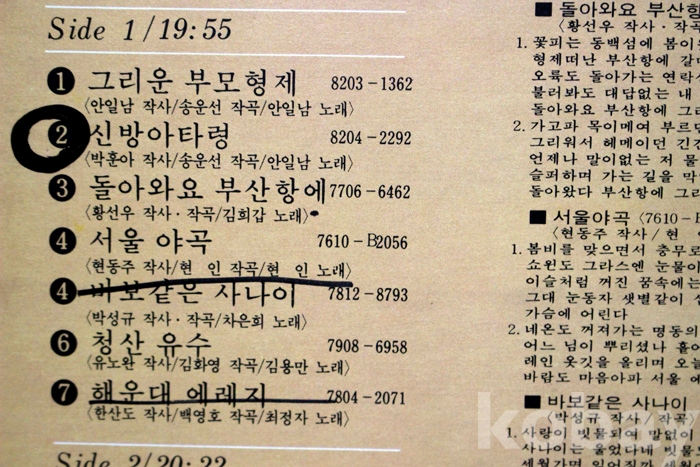 Side 1/19:55
❶ 그리운 부모형제 8203-1362
〈안일남 작사/송운선 작곡/안일남 노래〉
❷ 신방아타령 8204-2292
〈박훈아 작사/송운선 작곡/안일남 노래〉
❸ 돌아와요 부산항에 7706-6462
〈황선우 작사·작곡/김희갑 노래〉
❹ 서울 야곡 7610-B2056
〈현동주 작사/현 인 작곡/현 인 노래〉
❹ 바보같은 사나이 7812-8793
〈박성규 작사·작곡/차은희 노래〉
❻ 청산 유수 7908-6958
〈유노완 작사/김화영 작곡/김용만 노래〉
❼ 해운대 에레지 7804-2071
〈한산도 작사/백영호 작곡/최정자 노래〉
Side 2/20:22
■ 돌아와요 부산항
〈황선우 작사·작곡
1. 꽃피는 동백섬에 봄이
형제떠난 부산항에 갈
오륙도 돌아가는 연락
불러봐도 대답없는 내
돌아와요 부산항에 그리
2. 가고파 목이메여 부르던
그리워서 헤메이던 긴긴
언제나 말이없는 저 물
슬퍼하며 가는 길을 막
돌아왔다 부산항에 그리
■ 서울야곡 〈7610-B
〈현동주 작사/현 인
1. 봄비를 맞으면서 충무로
쇼윈도 그라스엔 눈물이
이슬처럼 꺼진 꿈속에는
그대 눈동자 샛별같이
가슴에 어린다
2. 네온도 꺼져가는 명동의
어느 님이 뿌리셨나 흩어
레인 옷깃을 올리며 오늘
바람도 마음아파 서울 에
■ 바보같은 사나이
〈박성규 작사·작곡
1. 사랑이 빗물되여 말없이
사나이는 울었다네 빗물
세월가면 잊어질까 세월